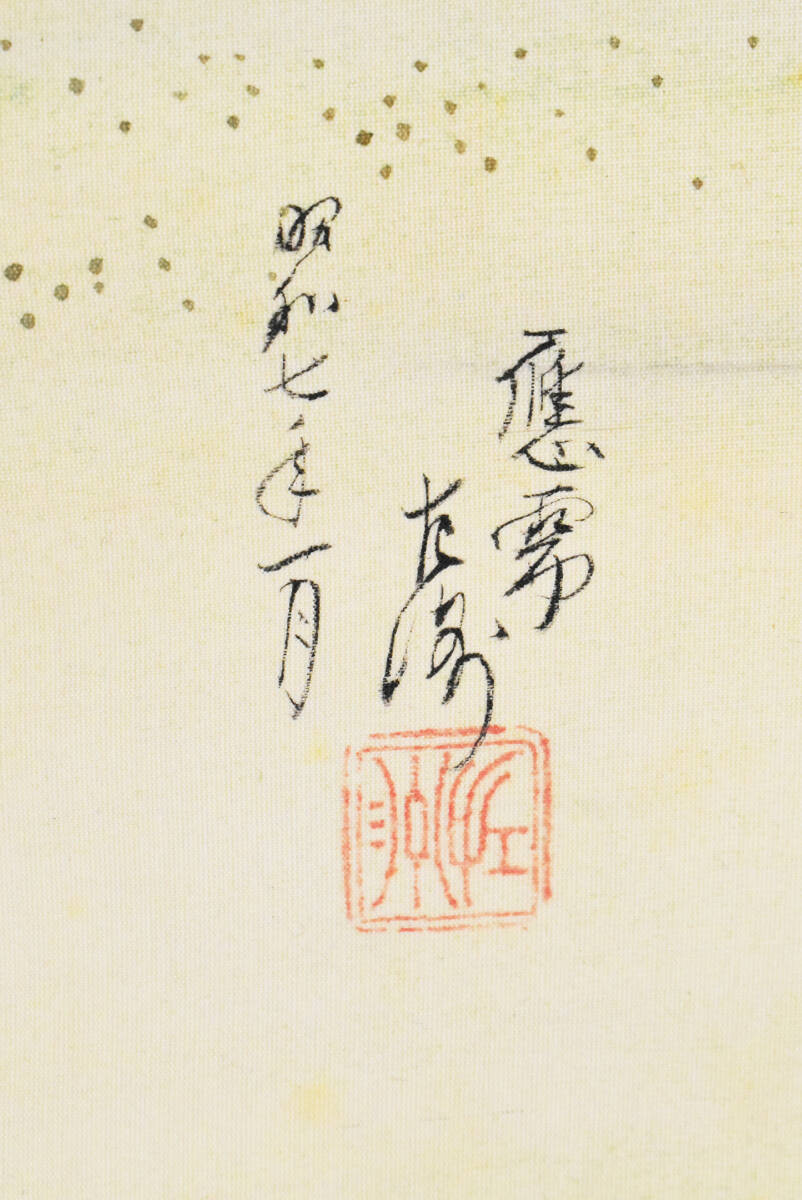 應需
左洲
昭和七年一月